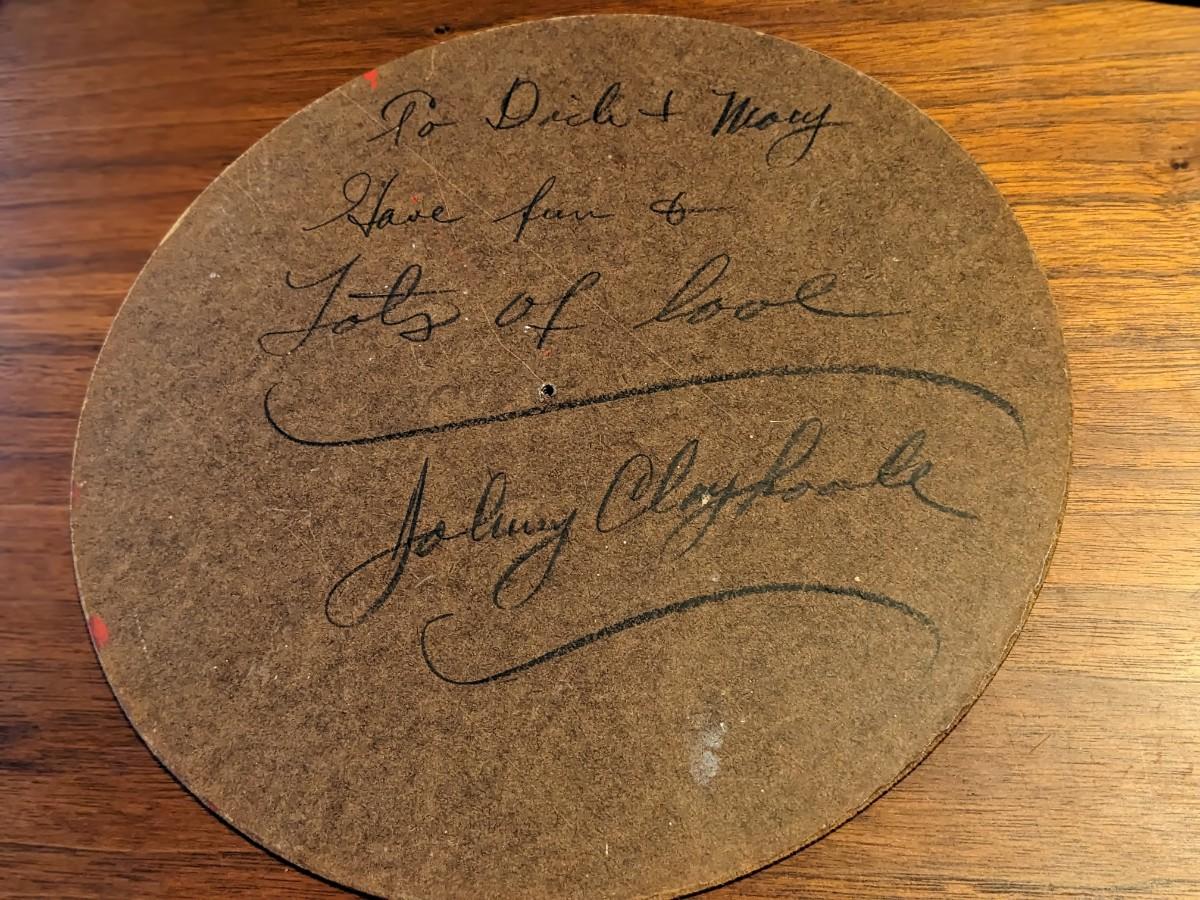 To Dick + Mary
Have fun &
Lots of love
Johnny Claypoole